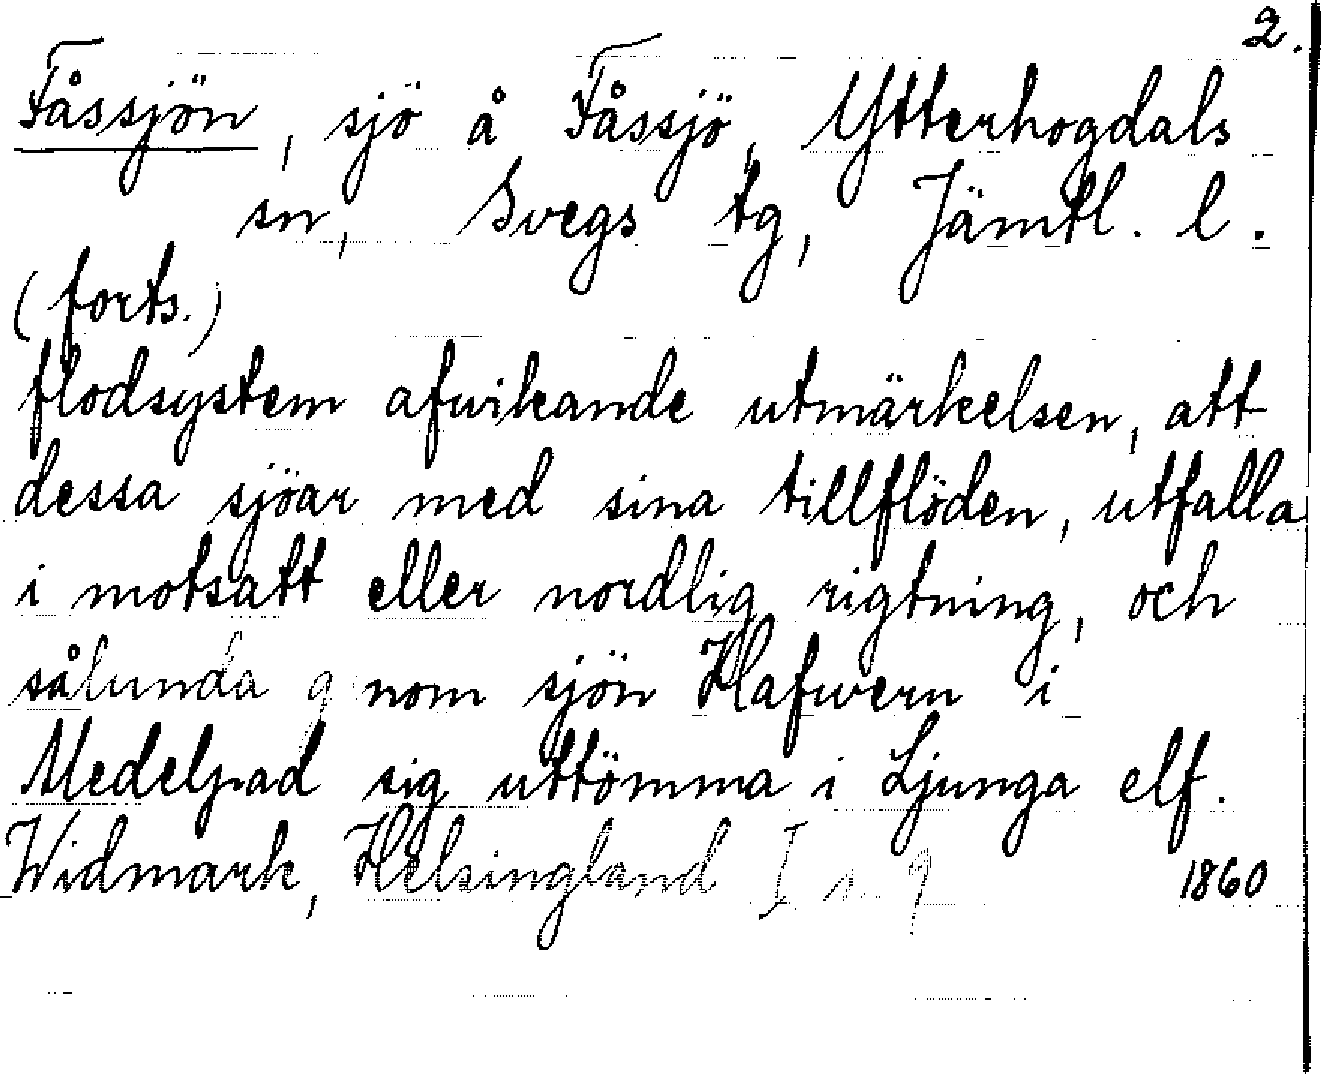 2.
Fåssjön, sjö å Fåssjö, Ytterhogdals
sn, Svegs tg, Jämtl. l.
(forts.)
flodsystem afwikande utmärkelsen, att
dessa sjöar med sina tillflöden, utfalla
i motsatt eller nordlig rigtning, och
sålunda genom sjön Hafwern i
Medelpad sig uttömma i Ljunga elf.
Widmark, Helsingland I s. 9 1860